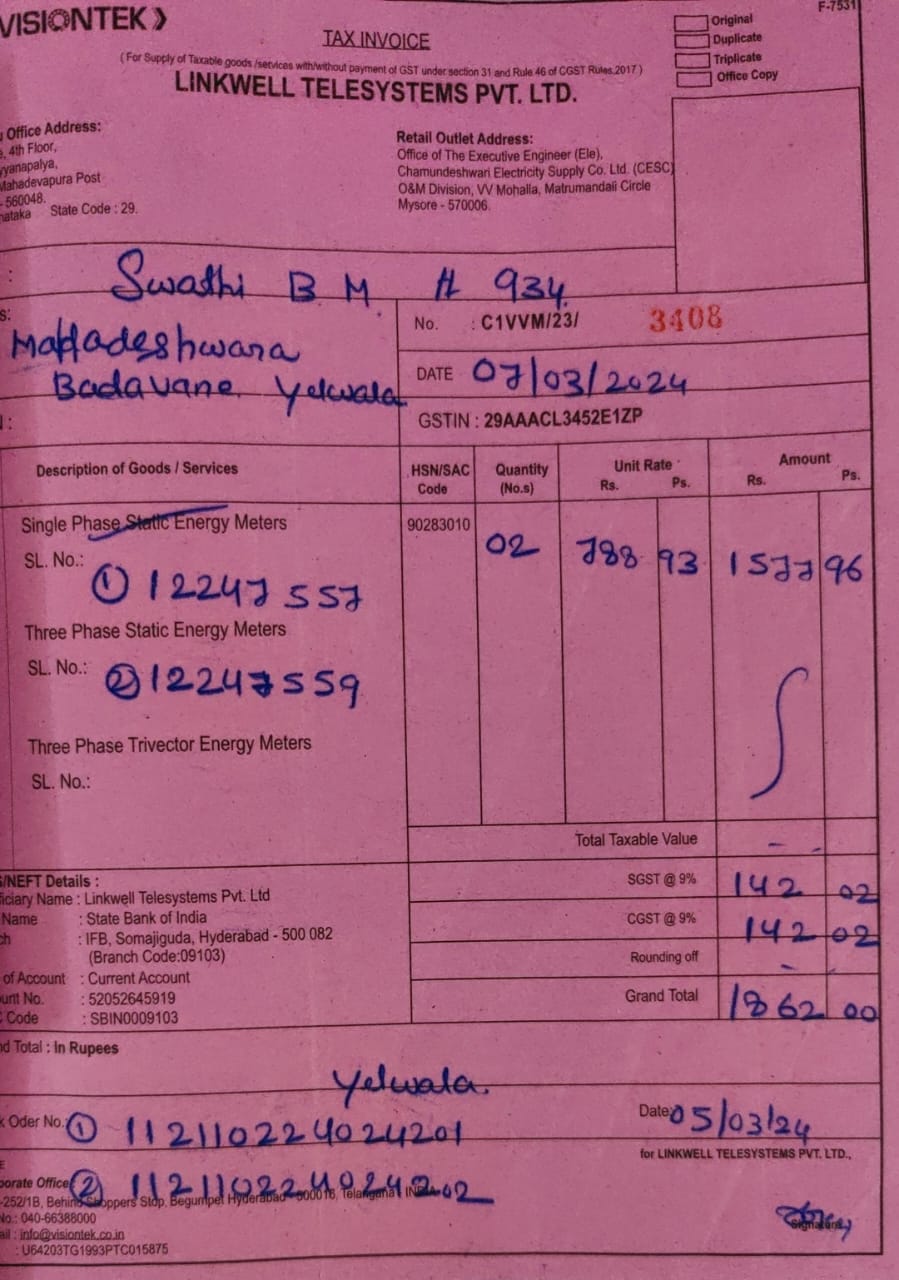 VISIONTEK
F-7531
TAX INVOICE
Original
Duplicate
Triplicate
Office Copy
( For Supply of Taxable goods /services with/without payment of GST under section 31 and Rule 46 of CGST Rules.2017 )
LINKWELL TELESYSTEMS PVT. LTD.
Office Address:
, 4th Floor,
yyanapalya,
Mahadevapura Post
- 560048.
nataka State Code : 29.
Retail Outlet Address:
Office of The Executive Engineer (Ele),
Chamundeshwari Electricity Supply Co. Ltd. (CESC)
O&M Division, VV Mohalla, Matrumandali Circle
Mysore - 570006.
: Swathi B M # 934
s: Mahadeshwara
Badavane, Yelwala
No. : C1VVM/23/ 3408
DATE 07/03/2024
GSTIN : 29AAACL3452E1ZP
Description of Goods / Services HSN/SAC Code Quantity (No.s) Unit Rate Rs. Ps. Amount Rs. Ps.
Single Phase Static Energy Meters 90283010 02 788 93 1577 96
SL. No.: ① 12247557
Three Phase Static Energy Meters
SL. No.: ② 12247559
Three Phase Trivector Energy Meters
SL. No.:
Total Taxable Value -
SGST @ 9% 142 02
CGST @ 9% 142 02
Rounding off -
Grand Total 1862 00
/NEFT Details :
ficiary Name : Linkwell Telesystems Pvt. Ltd
Name : State Bank of India
ch : IFB, Somajiguda, Hyderabad - 500 082
(Branch Code:09103)
of Account : Current Account
unt No. : 52052645919
Code : SBIN0009103
nd Total : In Rupees
Yelwala.
k Oder No.: ① 112110224024201
Date: 05/03/24
for LINKWELL TELESYSTEMS PVT. LTD.,
porate Office ② 112110224024202
-252/1B, Behind Shoppers Stop, Begumpet Hyderabad - 500016, Telangana INDIA
No.: 040-66388000
ail : info@visiontek.co.in
: U64203TG1993PTC015875
Signature